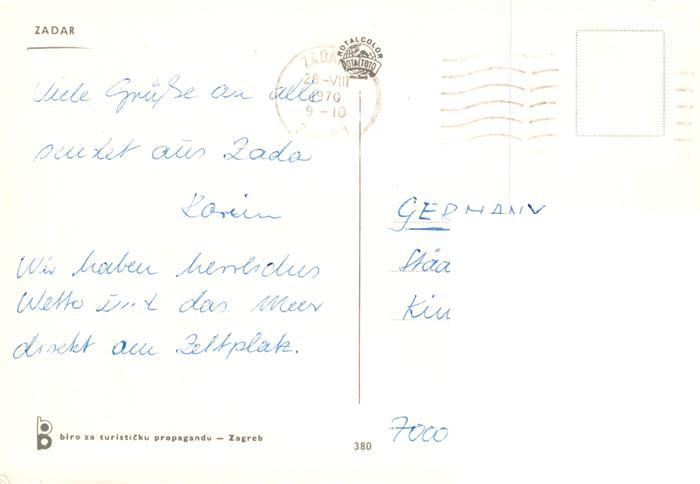 ZADAR
Viele Grüße an alle
sendet aus Zada
Karin
Wir haben herrliches
Wetter und das Meer
direkt am Zeltplatz.
biro za turističku propagandu — Zagreb
380
ROTALCOLOR
ZADAR
28-VIII
1970
9-10
GERMANY
Stäa
Kin
7000